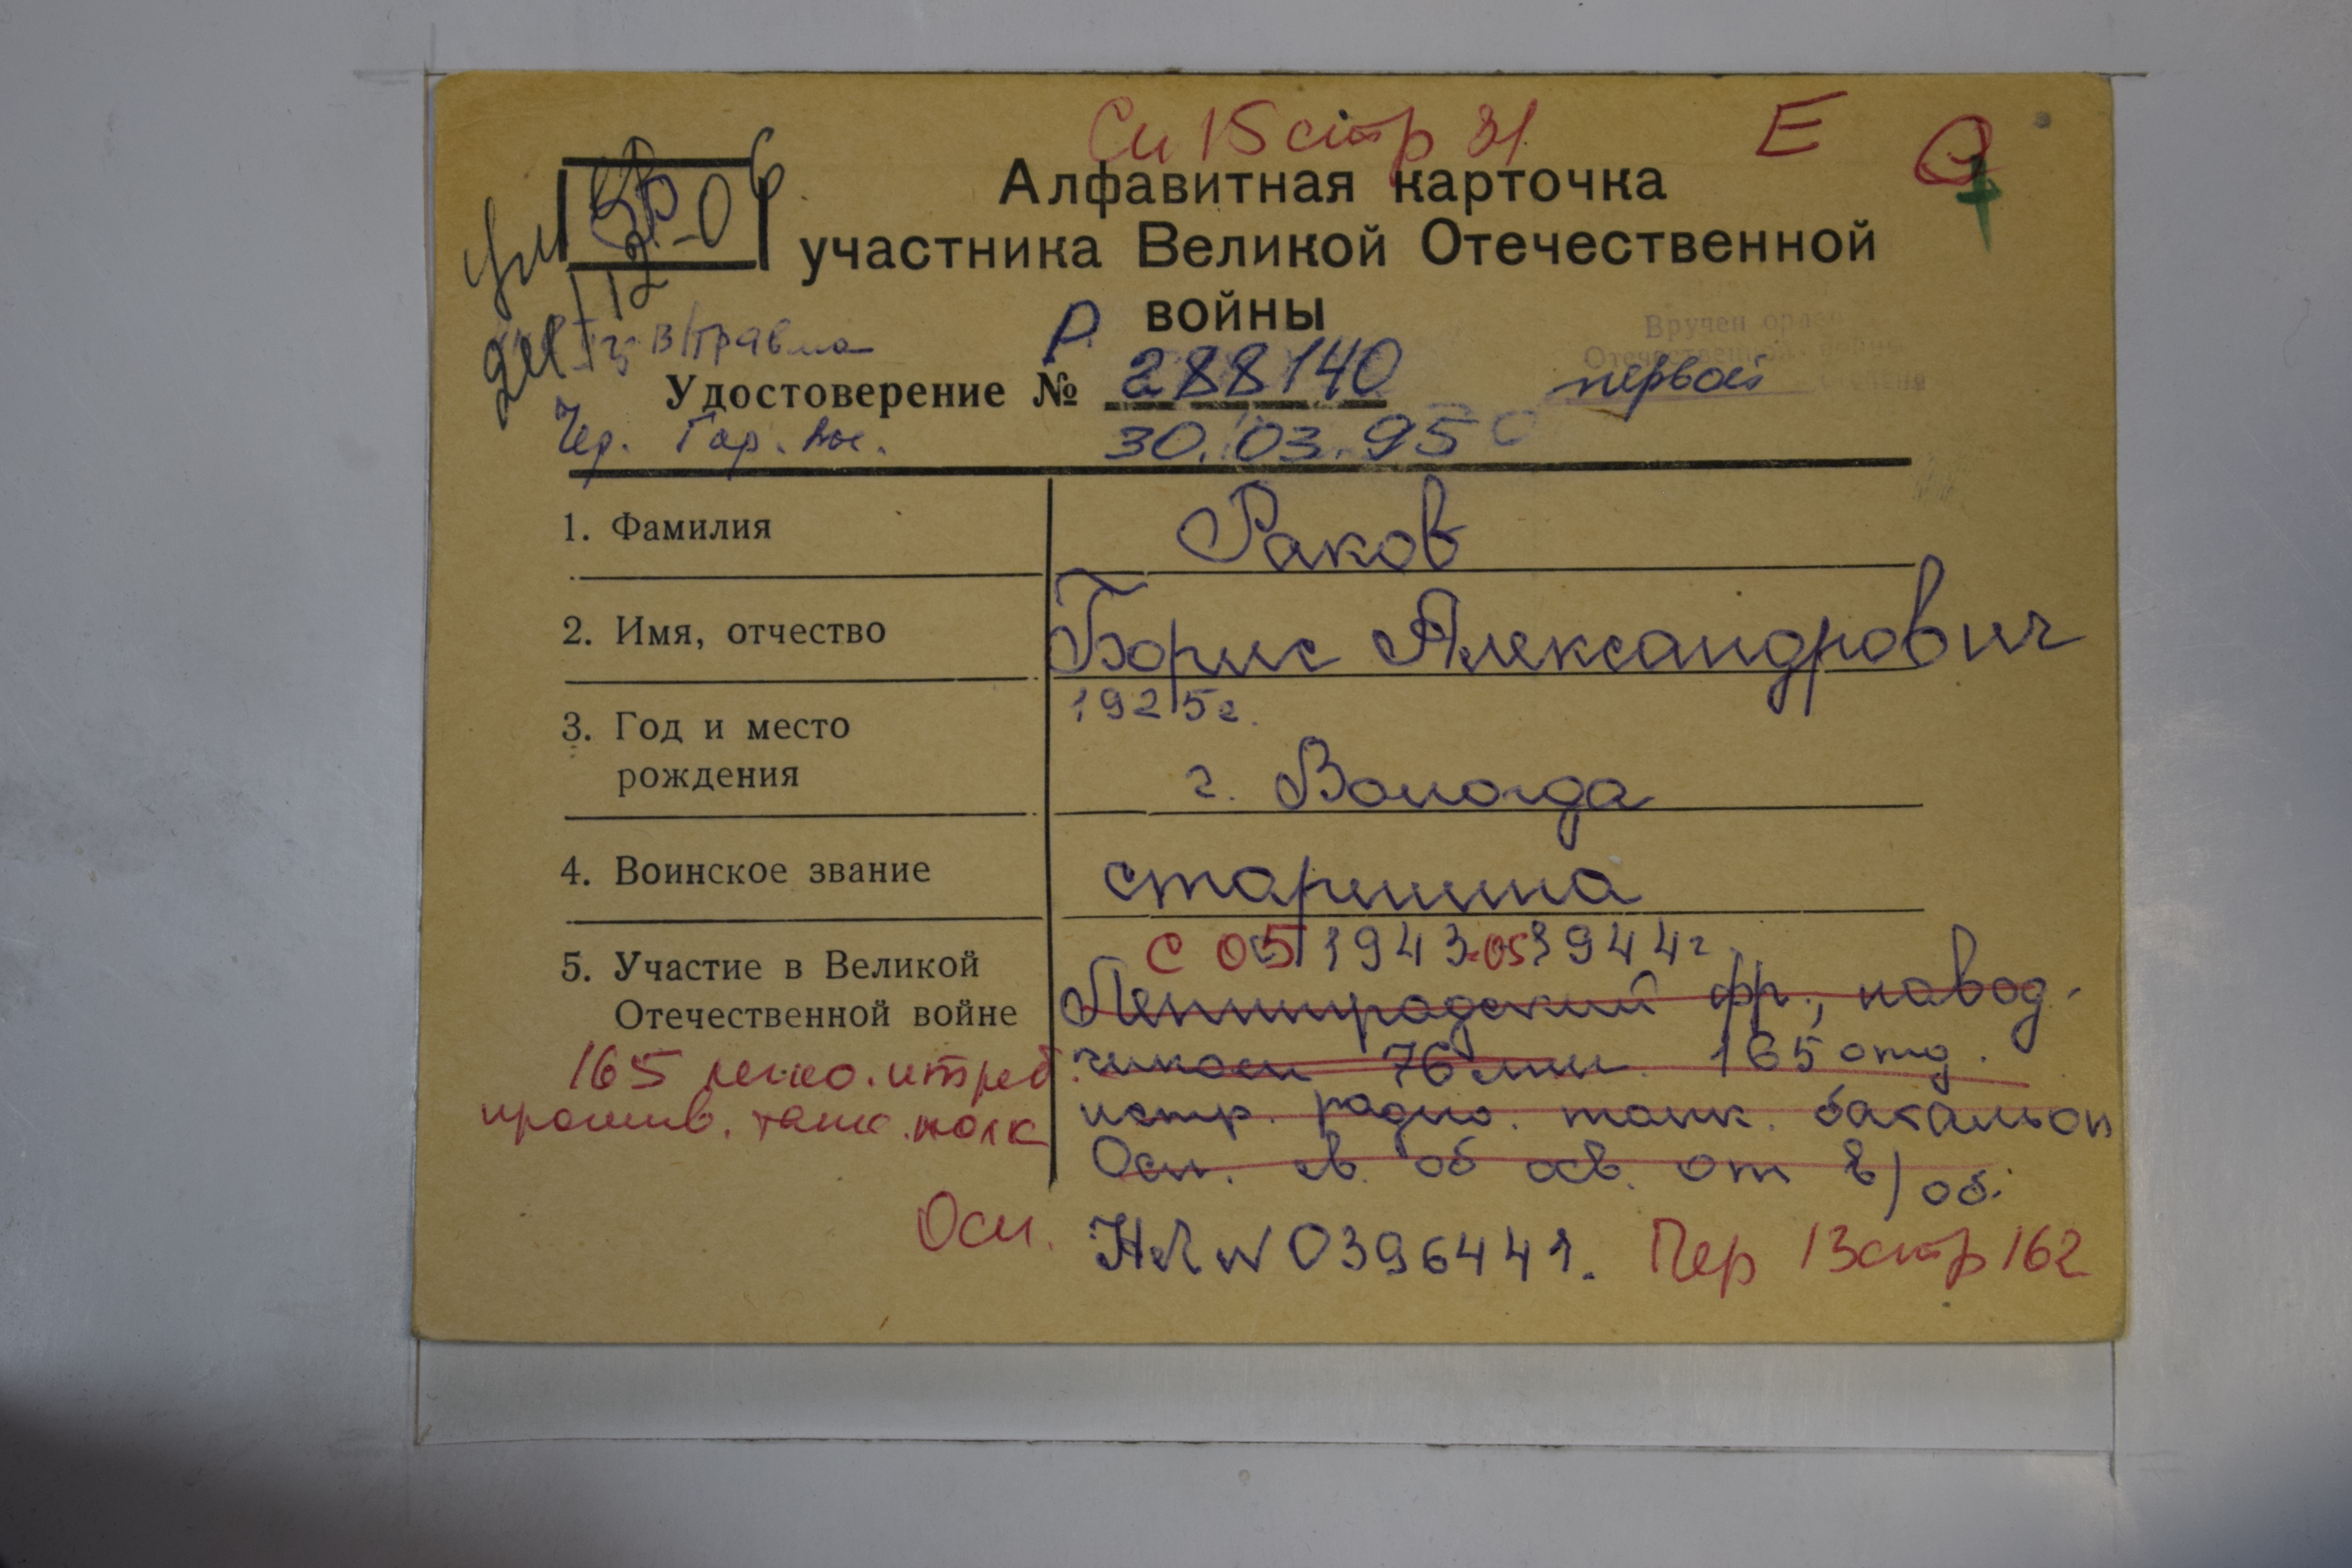 Сп 15 стр 31 Е
Алфавитная карточка
участника Великой Отечественной
войны
Р.
Вручен орден
Отечественной войны
первой
Удостоверение № 288140
30.03.95
1. Фамилия
Раков
2. Имя, отчество
Борис Александрович
3. Год и место
рождения
1925г.
г. Вологда
4. Воинское звание
старшина
5. Участие в Великой
Отечественной войне
с 05 1943-05 1944г.
Ленинградский фр., навод-
чиком 76 мм. 165 отд.
истр. радио. танк. батальон
Осн. св. об осв. от в/об.
165 истреб.
против. танк. полк
Осн.
НЛ № 0396441. Пер 13 стр 162